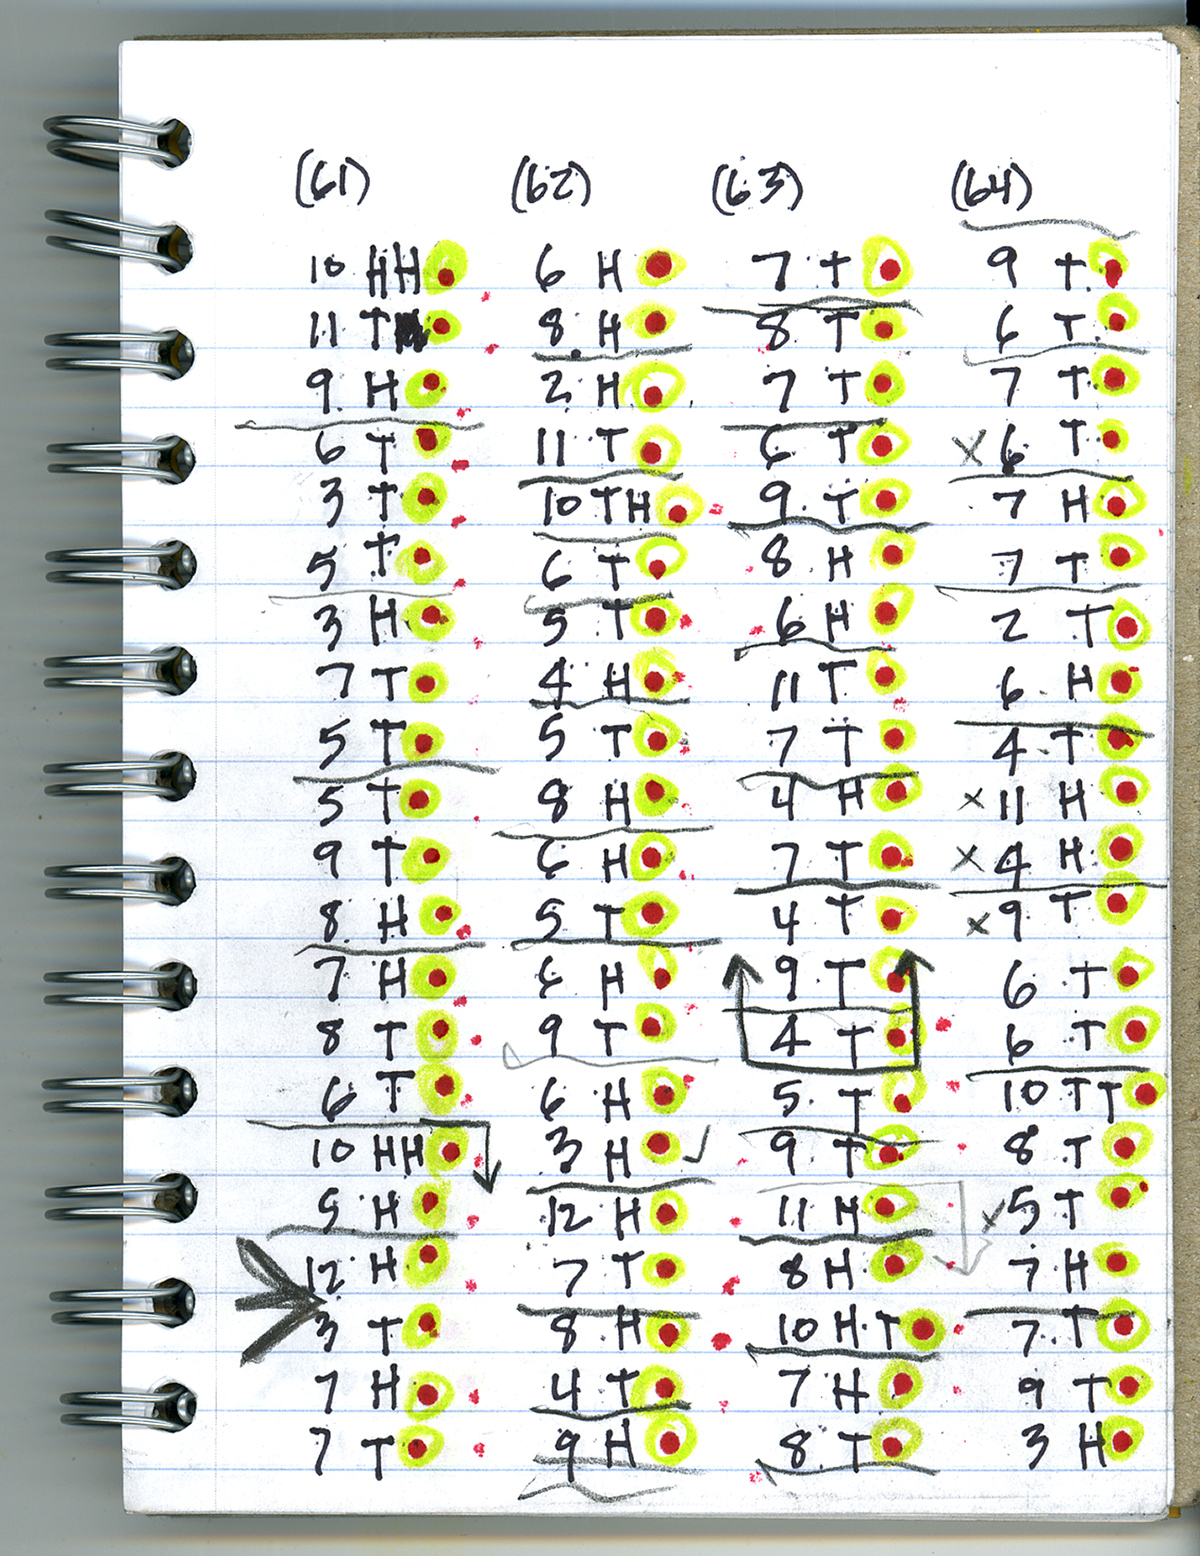 (61) (62) (63) (64)
10 HH 6 H 7 T 9 T
11 T 8 H 8 T 6 T
9 H 2 H 7 T 7 T
6 T 11 T 6 T x 6 T
3 T 10 TH 9 T 7 H
5 T 6 T 8 H 7 T
3 H 5 T 6 H 2 T
7 T 4 H 11 T 6 H
5 T 5 T 7 T 4 T
5 T 8 H 4 H x 11 H
9 T 6 H 7 T x 4 H
8 H 5 T 4 T x 9 T
7 H 6 H 9 T 6 T
8 T 9 T 4 T 6 T
6 T 6 H 5 T 10 TT
10 HH 3 H ✓ 9 T 8 T
5 H 12 H 11 H x 5 T
12 H 7 T 8 H 7 H
3 T 8 H 10 HT 7 T
7 H 4 T 7 H 9 T
7 T 9 H 8 T 3 H